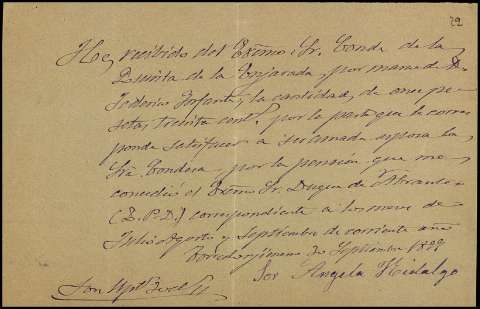 72
He, recibido del Exmo. Sr. Conde de la
Quinta de la Enjarada, por mano de D.
Federico Infante, la cantidad, de once pe-
setas, treinta cent.s por la parte que le corres
ponde satisfacer a su amada esposa la
Sra. Condesa, por la pension que me
concedió el Exmo. Sr. Duque de Abrantes
(E.P.D.) correspondiente a los meses de
Julio Agosto y Septiembre de corriente año
de Septiembre 1899
Sor Angela Hidalgo
Son